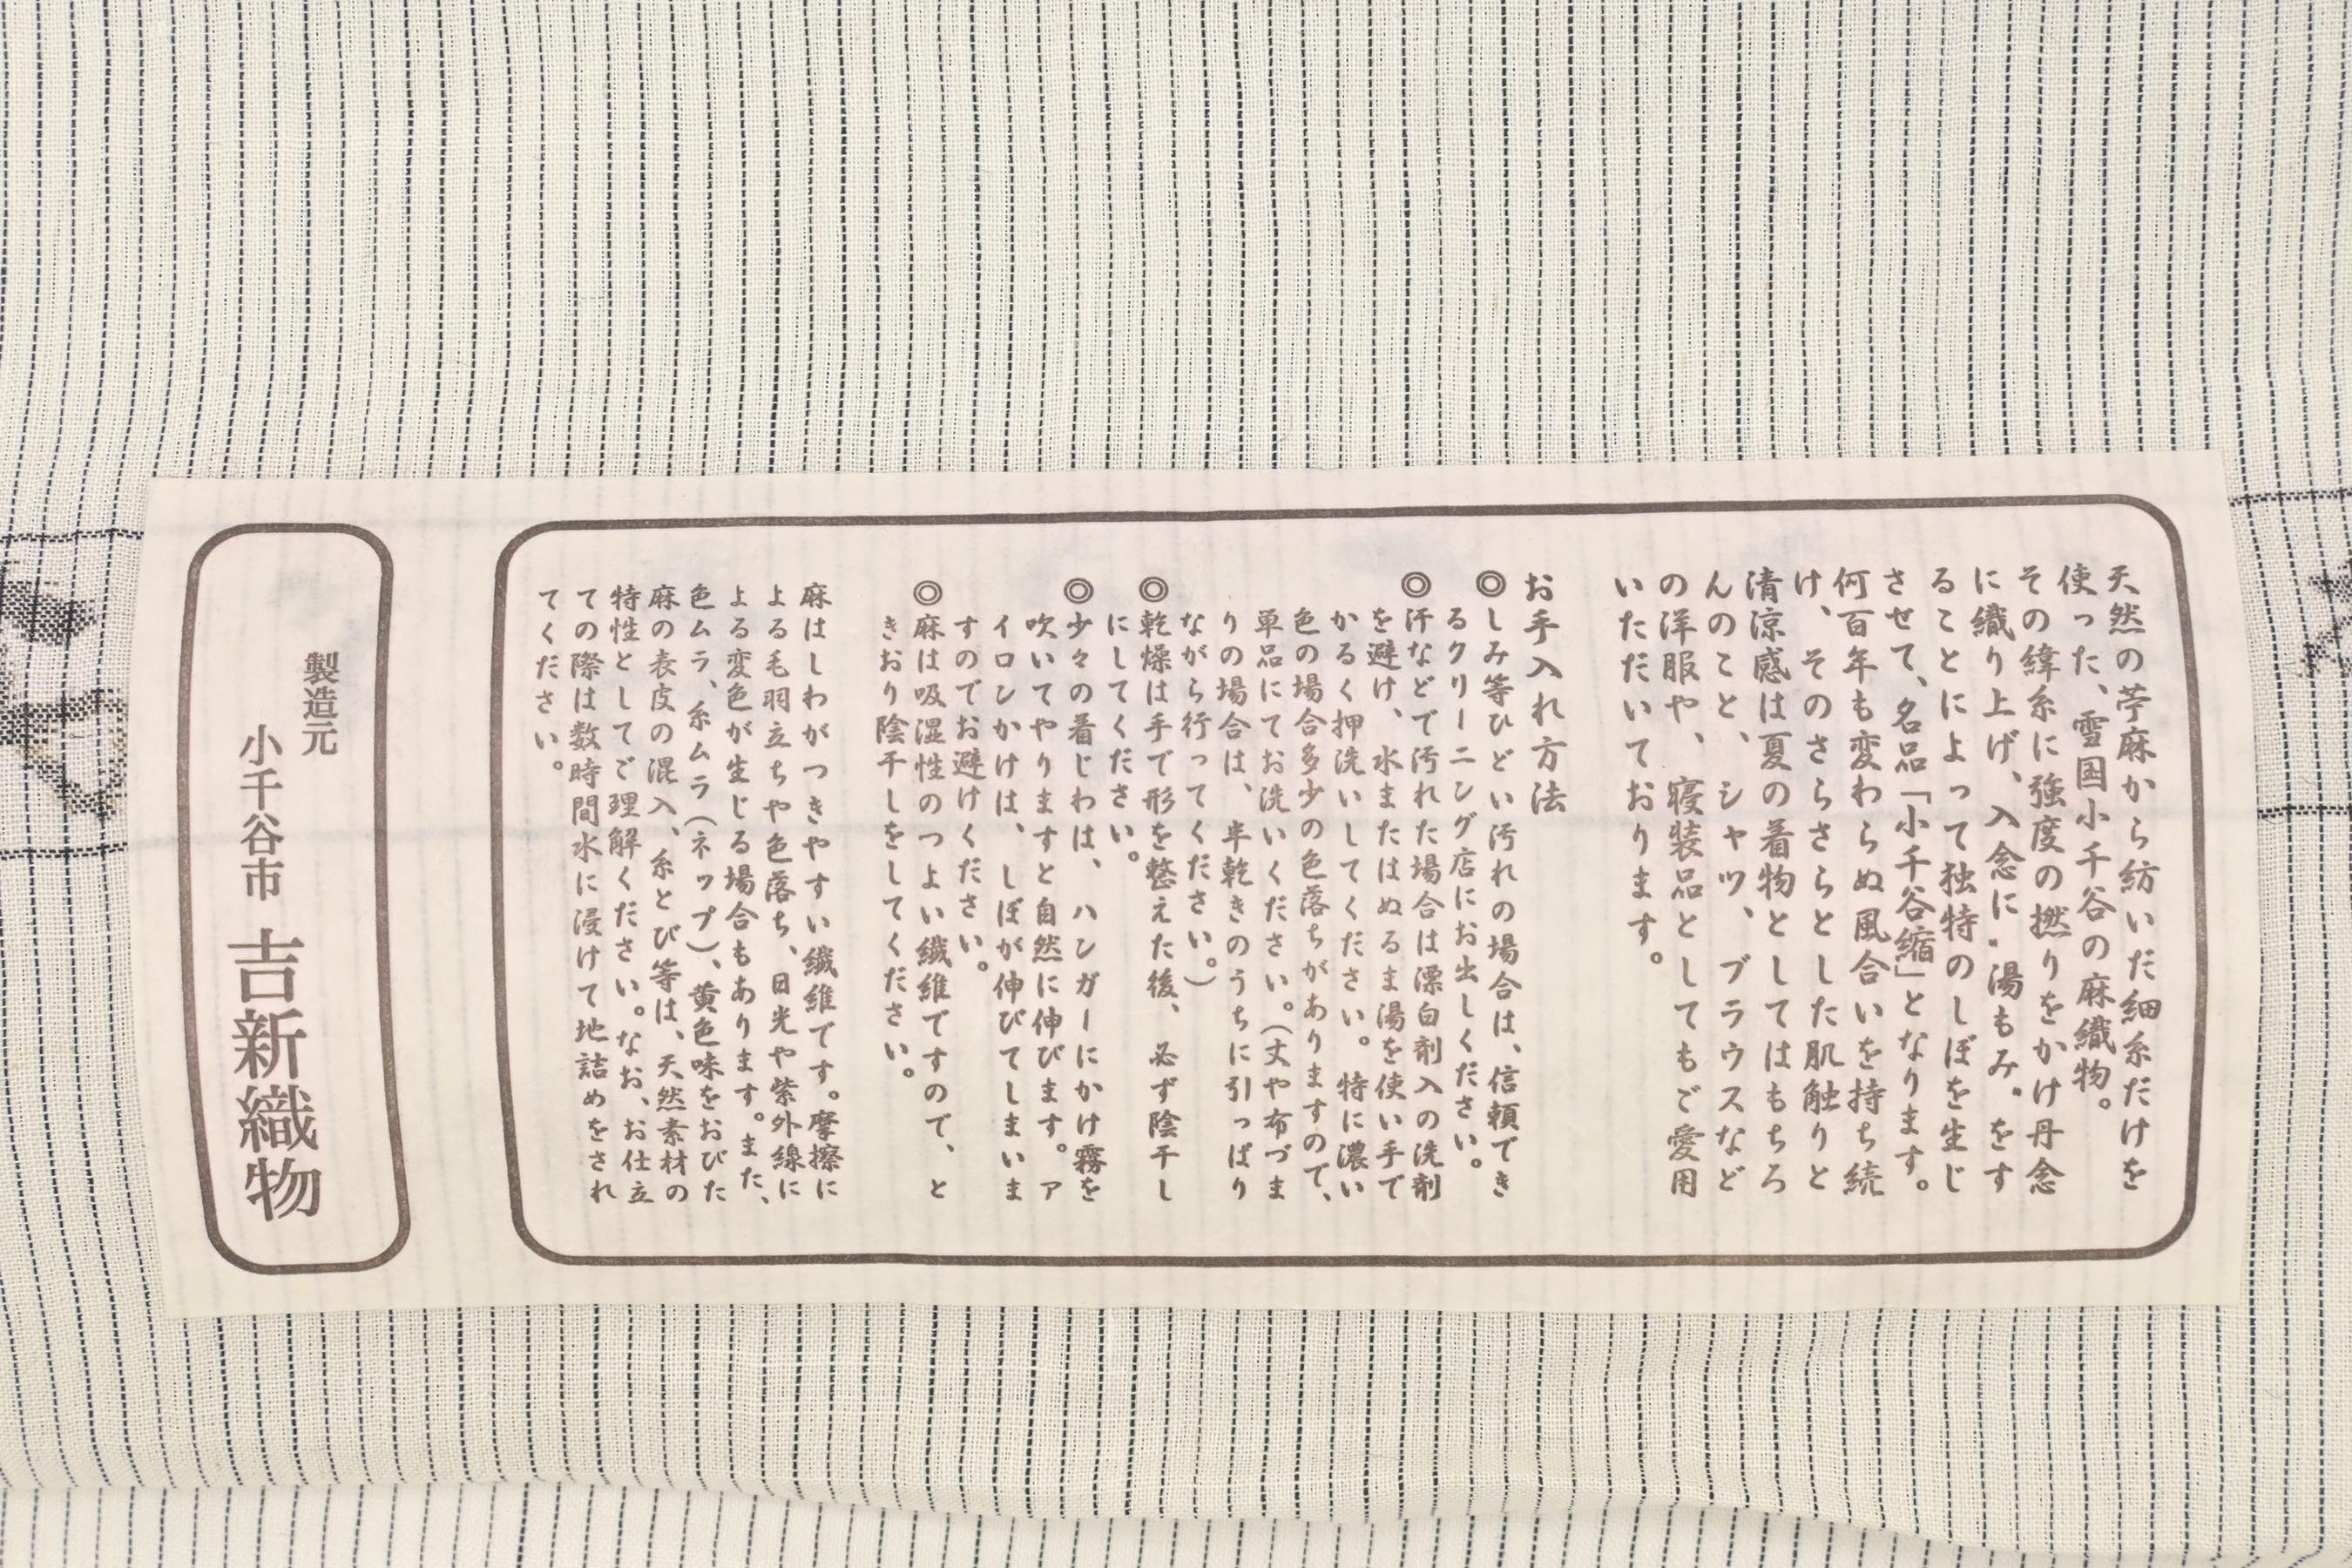 天然の苧麻から紡いだ細糸だけを
使った、雪国小千谷の麻織物。
その緯糸に強度の撚りをかけ丹念
に織り上げ、入念に・湯もみ・をす
ることによって独特のしぼを生じ
させて、名品「小千谷縮」となります。
何百年も変わらぬ風合いを持ち続
け、そのさらさらとした肌触りと
清涼感は夏の着物としてはもちろ
んのこと、シャツ、ブラウスなど
の洋服や、寝装品としてもご愛用
いただいております。
お手入れ方法
◎しみ等ひどい汚れの場合は、信頼でき
るクリーニング店にお出しください。
◎汗などで汚れた場合は漂白剤入の洗剤
を避け、水またはぬるま湯を使い手で
かるく押洗いしてください。特に濃い
色の場合多少の色落ちがありますので、
単品にてお洗いください。(丈や布づま
りの場合は、半乾きのうちに引っぱり
ながら行ってください。)
◎乾燥は手で形を整えた後、必ず陰干し
にしてください。
◎少々の着じわは、ハンガーにかけ霧を
吹いてやりますと自然に伸びます。ア
イロンかけは、しぼが伸びてしまいま
すのでお避けください。
◎麻は吸湿性のつよい繊維ですので、と
きおり陰干しをしてください。
麻はしわがつきやすい繊維です。摩擦に
よる毛羽立ちや色落ち、日光や紫外線に
よる変色が生じる場合もあります。また、
色ムラ、糸ムラ(ネップ)、黄色味をおびた
麻の表皮の混入、糸とび等は、天然素材の
特性としてご理解ください。なお、お仕立
ての際は数時間水に浸けて地詰めをされ
てください。
製造元
小千谷市 吉新織物